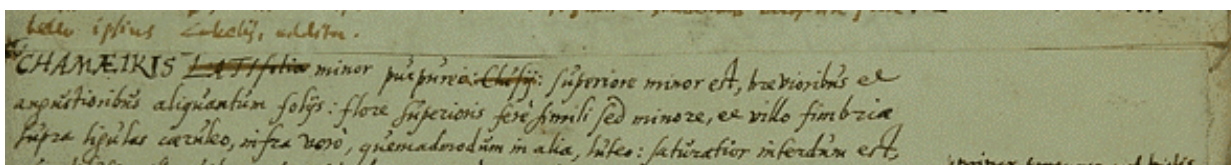 ipsius addita.
CHAMÆIRIS LATIfolia minor purpureo: Clusij: superiore minor est, brevioribus et
angustioribus aliquantum folijs: flore superioris ferè simili sed minore, et villo fimbriæ
supra ligulas cæruleo, infra verò, quemadmodum in alia, luteo: saturatior interdum est,